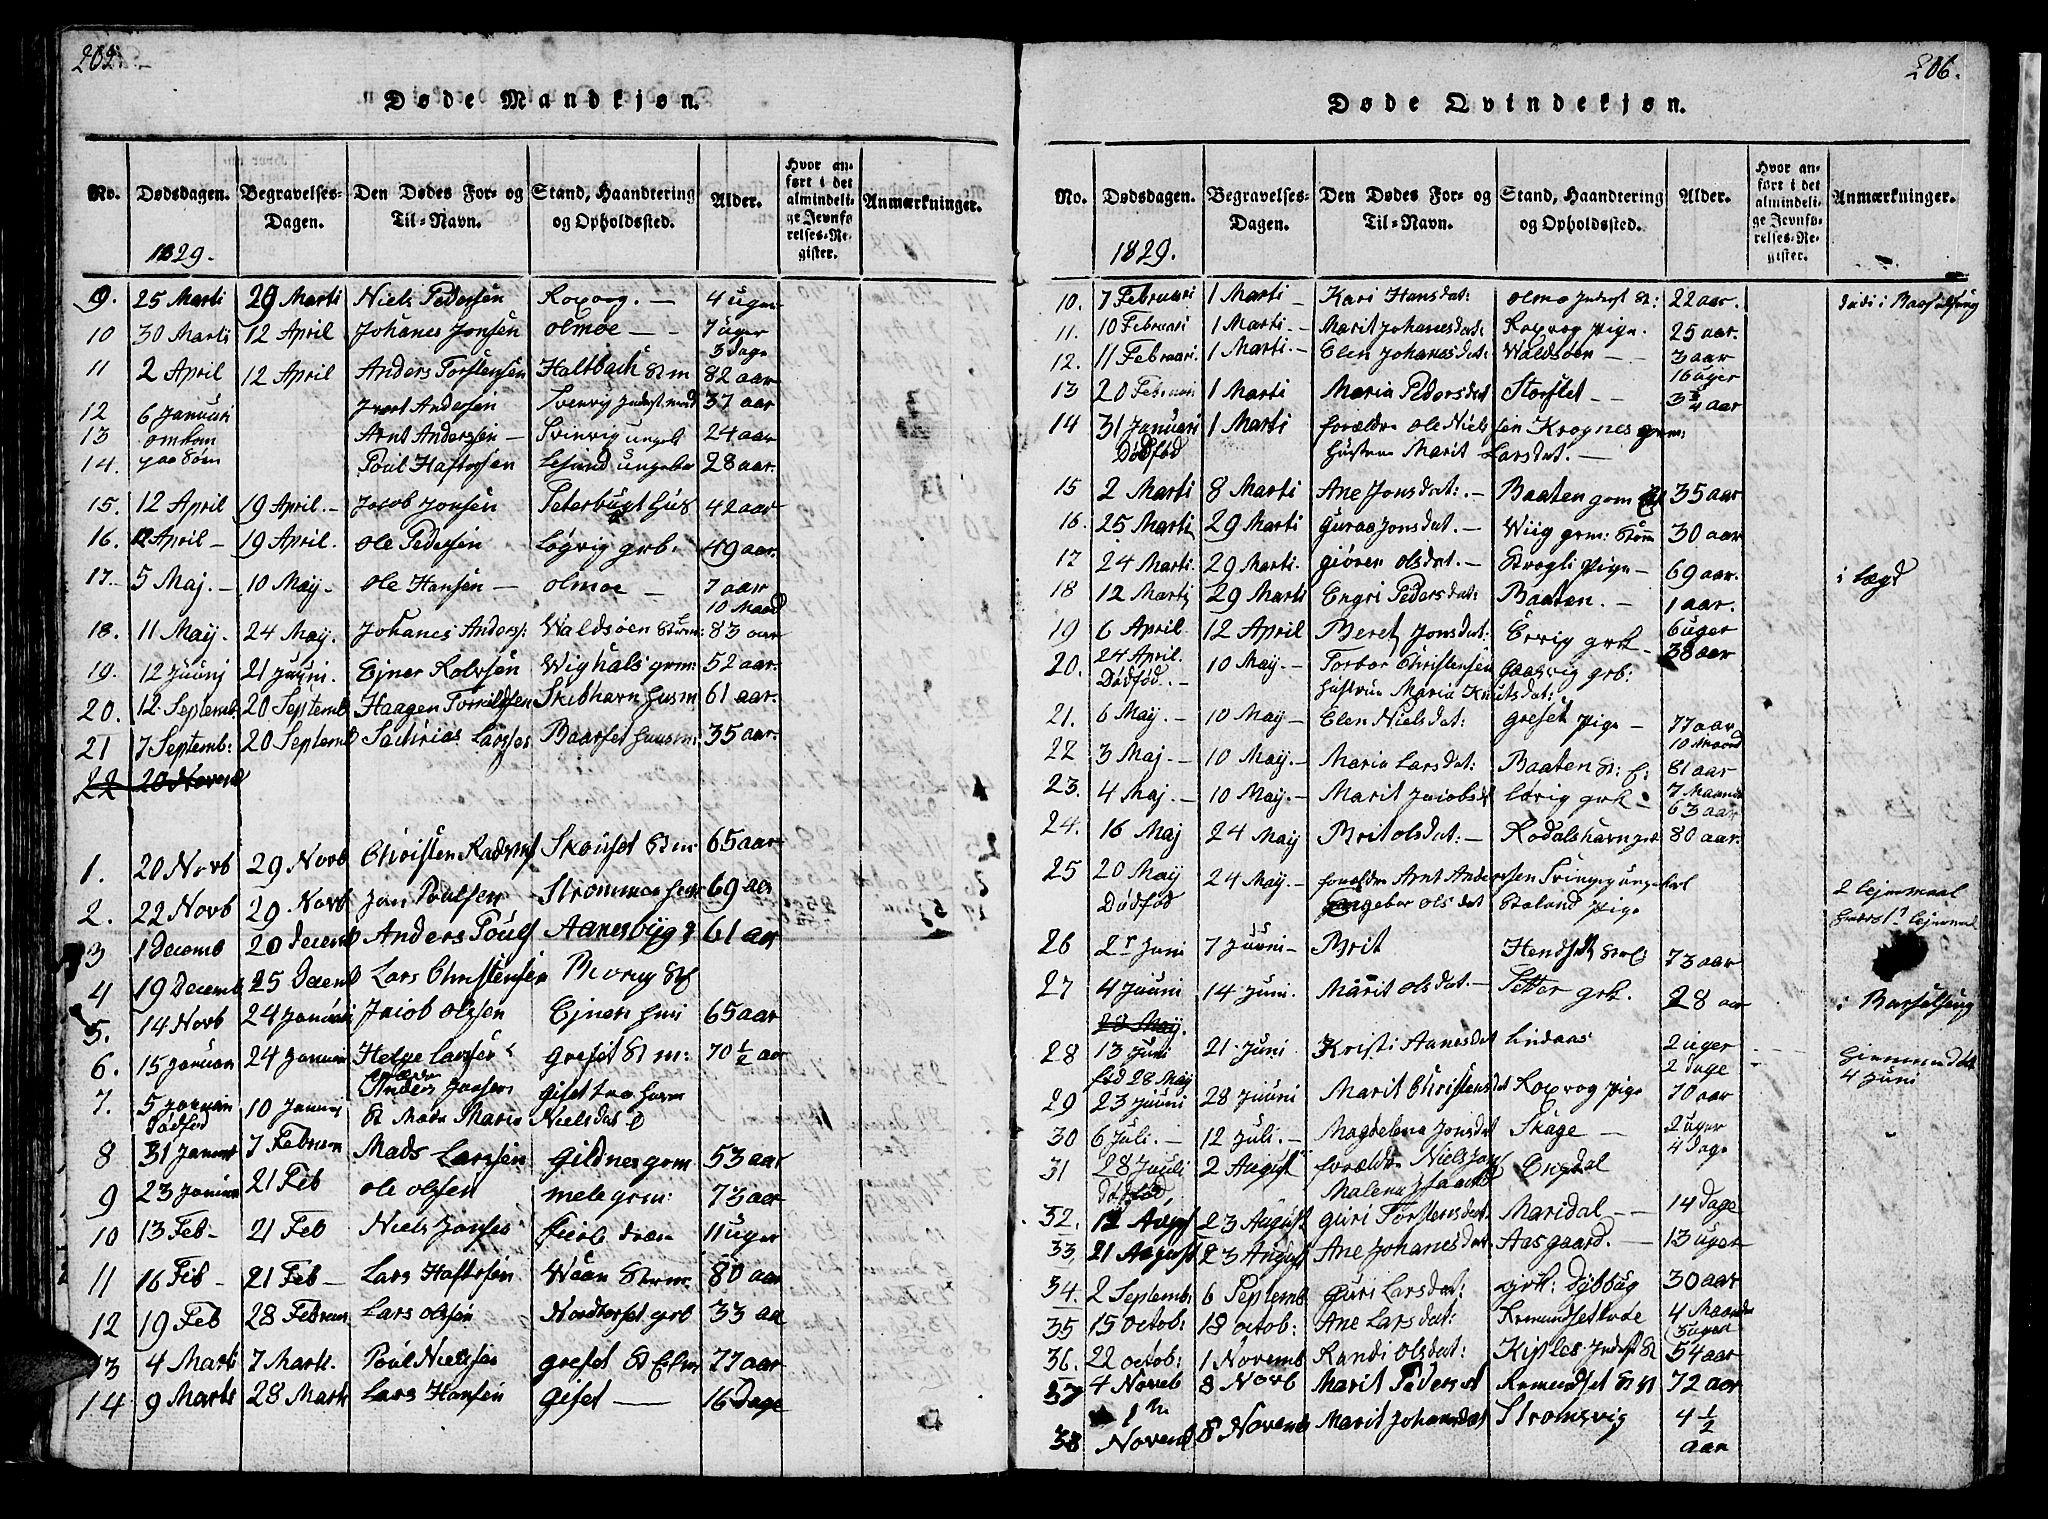 206.
Døde Mandkjøn.
No. Dødsdagen. Begravelses-Dagen. Den Dødes For- og Til-Navn. Stand, Haandtering og Opholdssted. Alder. Hvor anført i det almindelige Jevnførelses-Register. Anmærkninger.
1829.
9. 25 Marti 29 Marti Niels Pedersen Roxvog. — 4 uger
10 30 Marti 12 April Johanes Jonsen olmoe — 7 uger 3 Dage
11 2 April 12 April Anders Torstensen Haltbach 82 aar
12 6 Januari Andersen 37 aar
13 omkom Arnt Anderssen — Svinvig ungk 24 aar
14. paa Søen Poul Haftorsen 28 aar.
15. 12 April 19 April. — Jacob Jonsen Peterbugt Hus 42 aar
16. April — 19 April. Ole Pedersen Løgvig grb: 49 aar.
17. 5 Maj. — 10 May. Ole Hansen — olmoe — 7 aar 10 Maand
18. 11 May. 24 May. Johanes Anders: Waldsøen 83 aar
19. 12 Juunj 21 Juuni. Ejner Rolvsen Wighals grm: 52 aar.
20. 12 Septemb. 20 Septemb Haagen Skibhavn husm 61 aar.
21 7 Septemb: 20 Septemb Sachrias Larssen Baarset huusm: 35 aar.
22 20 Novemb
1. 20 Novb 29 Novb Christen Skouset 65 aar
2. 22 Novb 29 Novb Jon Poulsen Strommen 69 aar
3 1 Decemb 20 Decemb Anders Pouls 61 aar
4 19 Decemb 25 Decemb Lars Christensen
5. 14 Novb 24 Januari Jacob Olssen 65 aar
6. 15 Januari 24 Januari Helge Larssen Greset 70 1/2 aar
7. 5 Januari Dødfød 10 Januari Anders Jonsen Giset
Maria Nielsdat
8 31 Januar 7 Februari Mads Larssen Gildnes grm 53 aar
9 23 Januar 21 Feb Ole Olssen mele grm: 73 aar
10 13 Feb — 21 Feb Niels Jonsen 11 uger
11 16 Feb — 21 Feb — Lars Haftorsen 80 aar
12 19 Feb 28 Februar Lars Olssen Nordvorset grb 33 aar
13 4 Marti 7 Marti. Poul Nielsen greset 77 aar
14 9 Marti 28 Marti Lars Hansen Giset — 16 Dage
206.
Døde Qvindekjøn.
No. Dødsdagen. Begravelses-Dagen. Den Dødes For- og Til-Navn. Stand, Haandtering og Opholdssted. Alder. Hvor anført i det almindelige Jevnførelses-Register. Anmærkninger.
1829.
10. 7 Februari 1 Marti — Kari Hansdat: olmo Inderst 22 aar. døde i Barselseng
11. 10 Februari 1 Marti. — Marit Johanesdat: Roxvog Pige. 25 aar.
12. 11 Februari. 1 Marti. — Elen Johanesdat: Waldsøen — 3 aar 16 uger
13 20 Februari 1 Marti Maria Pedersdat Storslet — 3 3/4 aar
14 31 Januari 1 Marti forældre Ole Nielssen Krognes grm:
Dødfød Hustrue Marit Larsdat. —
15 2 Marti 8 Marti Ane Jonsdat: — Baaten grm 35 aar
16. 25 Marti 29 Marti Guroe Jonsdat. — Wiig grm: 30 aar
17 24 Marti. 29 Marti. Giören Olsdat. — Pige — 69 aar. i Lægd
18 12 Marti 29 Marti Engri Pedersdat: Baaten. — 1 aar.
19 6 April 12 April Beret Jonsdat: Ervig grk — 6 uger 38 aar
20. 24 April. Dødfød. 10 May. — Torber Christensen grb:
Hustrue Maria Knutsdat:
21. 6 May. — 10 May — Elen Nielsdat: Greset Pige — 77 aar 10 Maaned
22 3 Maj. — 10 May. — Maria Larsdat: Baaten 81 aar
23. 4 Maj. — 10 May. — Marit Jacobsdt Lørig grk — 7 Maaned 63 aar
24. 16 Maj 24 Maj Brit Olsdat: — Rodalshavn 80 aar.
25 20 May Dødfød 24 May. — forældre Arnt Anderssen Svinvig ungekarl
Ingebor Olsdat Pige 2 Lejermaal
26 2 Juni 7 Juuni — Brit 73 aar
27 4 Juuni 14 Juni. Marit Olsdat. — Setter grk. 28 aar i Barselseng
28 May.
28 13 Juni 21 Juni Kristi Aanesdat Lindaas 2 uger 2 Dage Hiemmedøbt 4 Juni
fød 28 May
29 23 Juuni 28 Juuni Marit Christensdat Roxvog Pige 70 aar
30 6 Juli. — 12 Juli. — Magdelena Jonsdat Skage — 2 uger 4 Dage
31 28 Juuli Dødfød 2 August forældre Niels Jons Engdal
Malena
32. 12 August 23 August Guri Torstensdat. Maridal — 14 Dage
33. 21 August 23 August Ane Johanesdat. Aasgaard. — 13 uger
34. 2 Septemb. 6 Septemb Guri Larsdat: grk: Dybbug 30 aar
35 15 octob: 18 octob: Ane Larsdat: 4 Maaneder 3 uger
36. 22 octob: 1 Novemb Randi Olsdat: Inderst 54 aar
37 4 Noveb 8 Novb Marit Pedersdt 72 aar
38 1 Novemb 8 Novemb Marit Johansdat Stromsvig 4 1/2 aar